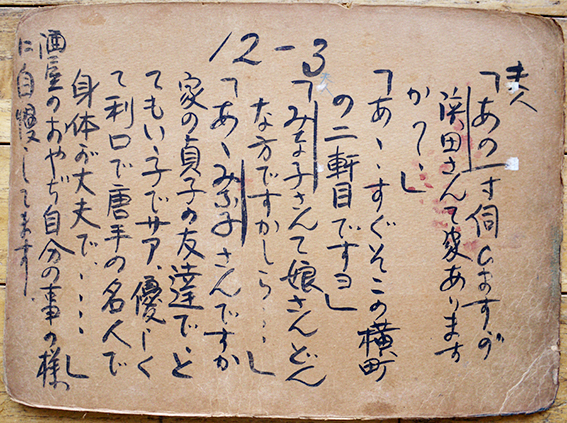 12-3
夫人
「あの一寸伺ひますが
浜田さんて家あります
か?、」
「あヽすぐそこの横町
の二軒目ですヨ」
夫人
「みな子さんて娘さんどん
な方ですかしら・・・」
「あヽみな子さんですか
家の貞子の友達で、と
てもいヽ子でサア、優しく
て利口で唐手の名人で
身体が大夫で、・・・・」
酒屋のおやぢ自分の事の様
に自慢してます、